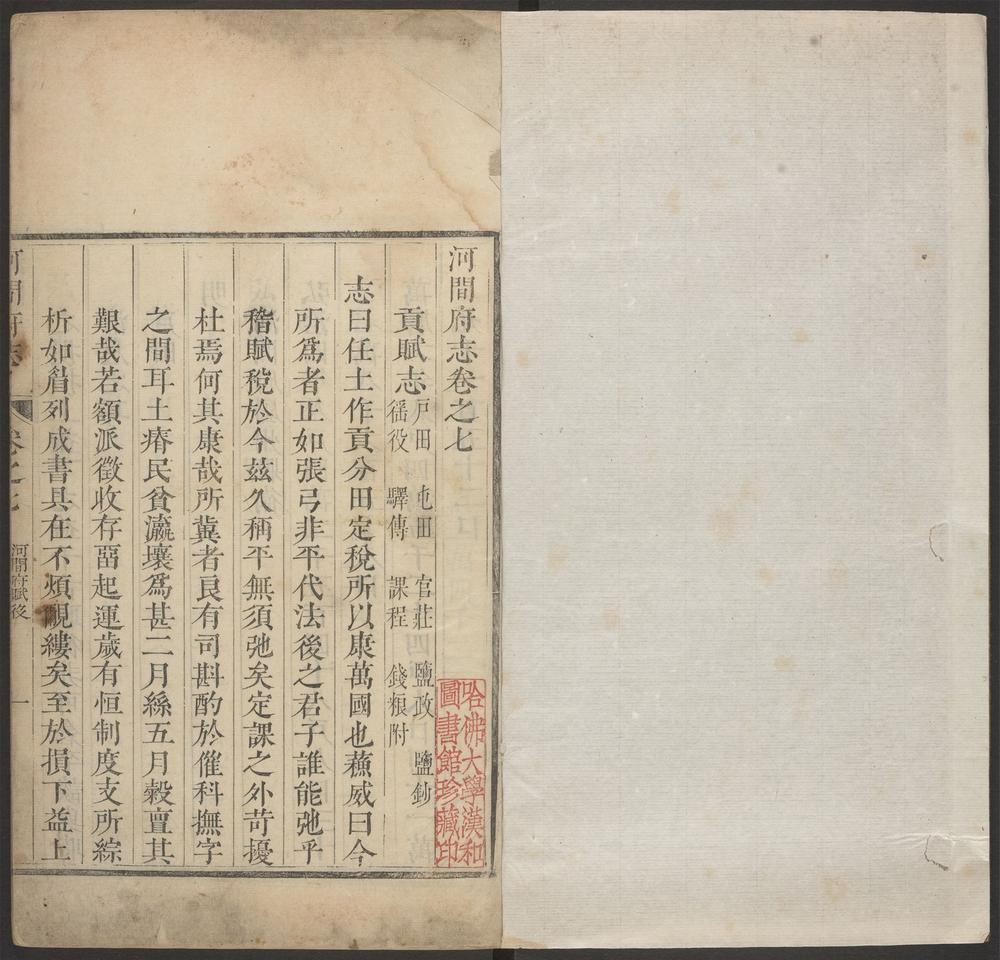 河間府志卷之七
貢賦志
戸田 屯田 官莊 鹽政 鹽鈔
徭役 驛傳 課程 錢粮附
志曰任土作貢分田定稅所以康萬國也蘓威曰今
所爲者正如張弓非平代法後之君子誰能弛乎
稽賦稅於今茲久稱平無須弛矣定課之外苛擾
杜焉何其康哉所兾者良有司斟酌於催科撫字
之間耳土瘠民貧瀛壤爲甚二月絲五月糓亶其
艱哉若額派徵收存畱起運歲有恒制度支所綜
析如眉列成書具在不煩覼縷矣至於損下益上
河間府志
卷之七
河間府賦役
一
哈佛大學漢和
圖書館珍藏印